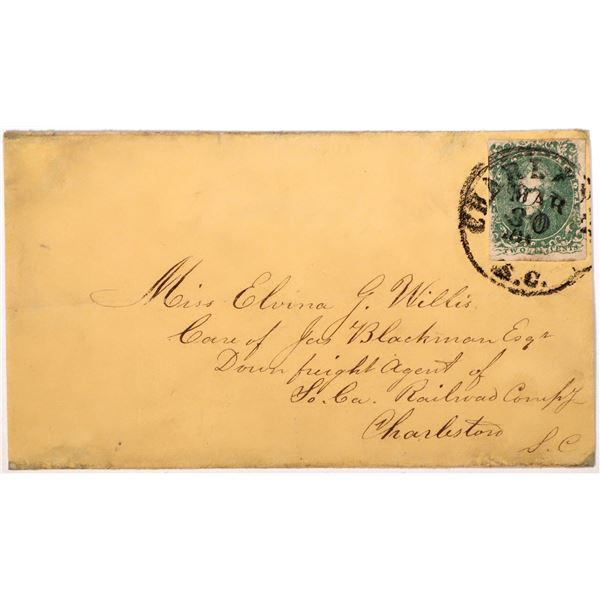 MAR
30
S.C.
TWO CENTS
Miss Elvina G. Willis
Care of Jas Blackman Esqr
Down freight Agent of
So. Ca. Railroad Compy
Charleston
S. C